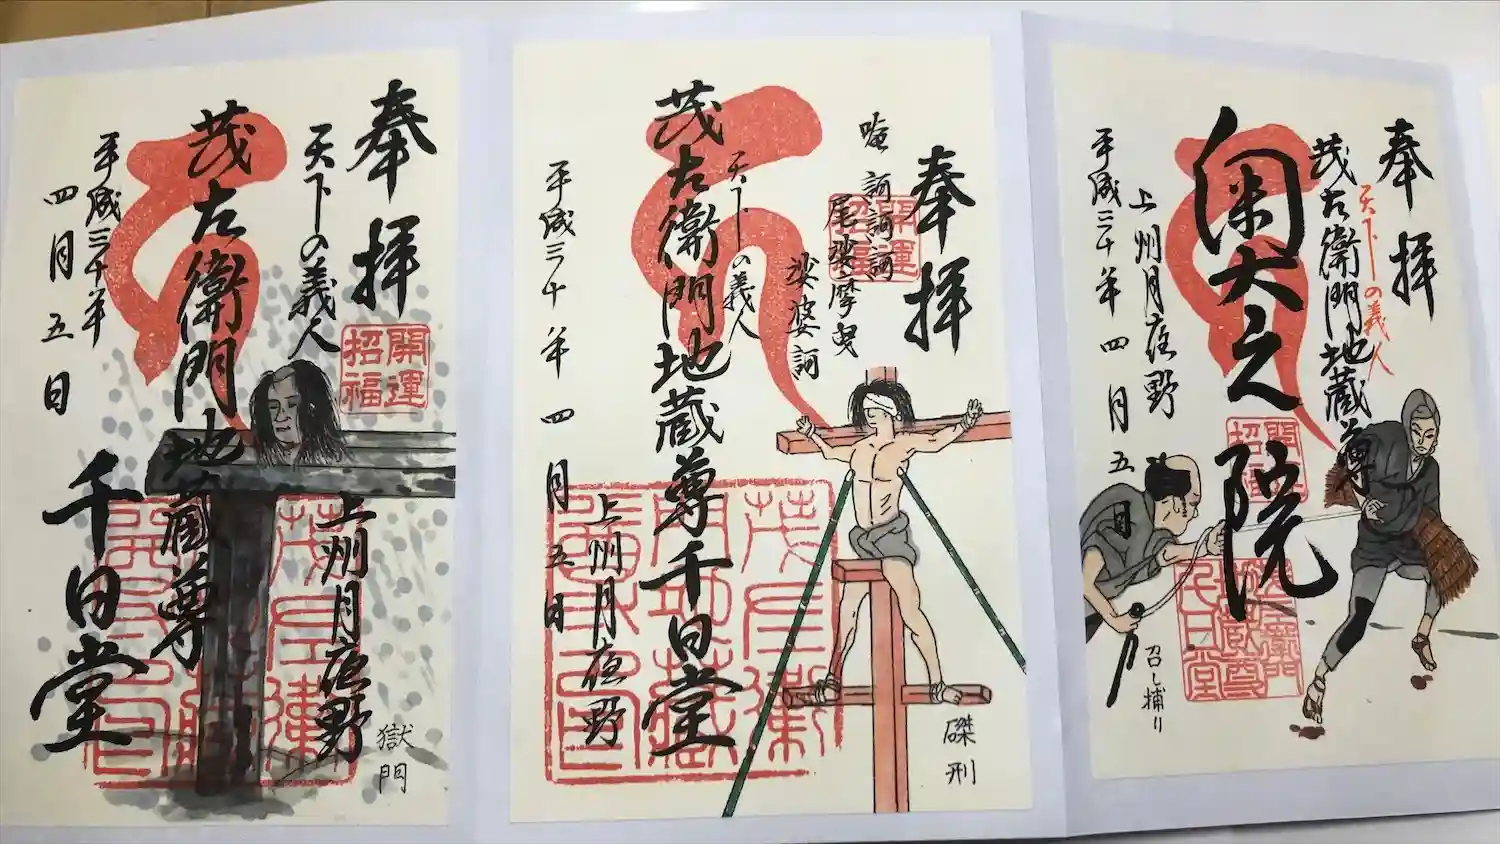 奉拝
天下の義人
開運
招福
茂左衛門地蔵尊
千日堂
上州月夜野
平成三十年
四月五日
獄門
奉拝
開運
招福
唵 訶訶訶
尾娑摩曳
娑婆訶
天下の義人
茂左衛門地蔵尊千日堂
上州月夜野
平成三十年 四月五日
磔刑
奉拝
天下の義人
茂左衛門地蔵尊
開運
招福
奥之院
上州月夜野
平成三十年四月五日
召し捕り